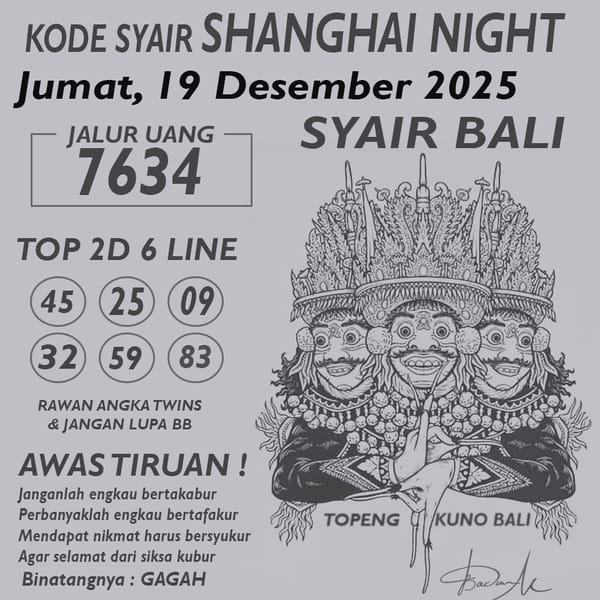 KODE SYAIR SHANGHAI NIGHT
Jumat, 19 Desember 2025
JALUR UANG
7634
SYAIR BALI
TOP 2D 6 LINE
45 25 09
32 59 83
RAWAN ANGKA TWINS
& JANGAN LUPA BB
AWAS TIRUAN !
Janganlah engkau bertakabur
Perbanyaklah engkau bertafakur
Mendapat nikmat harus bersyukur
Agar selamat dari siksa kubur
Binatangnya : GAGAH
TOPENG KUNO BALI